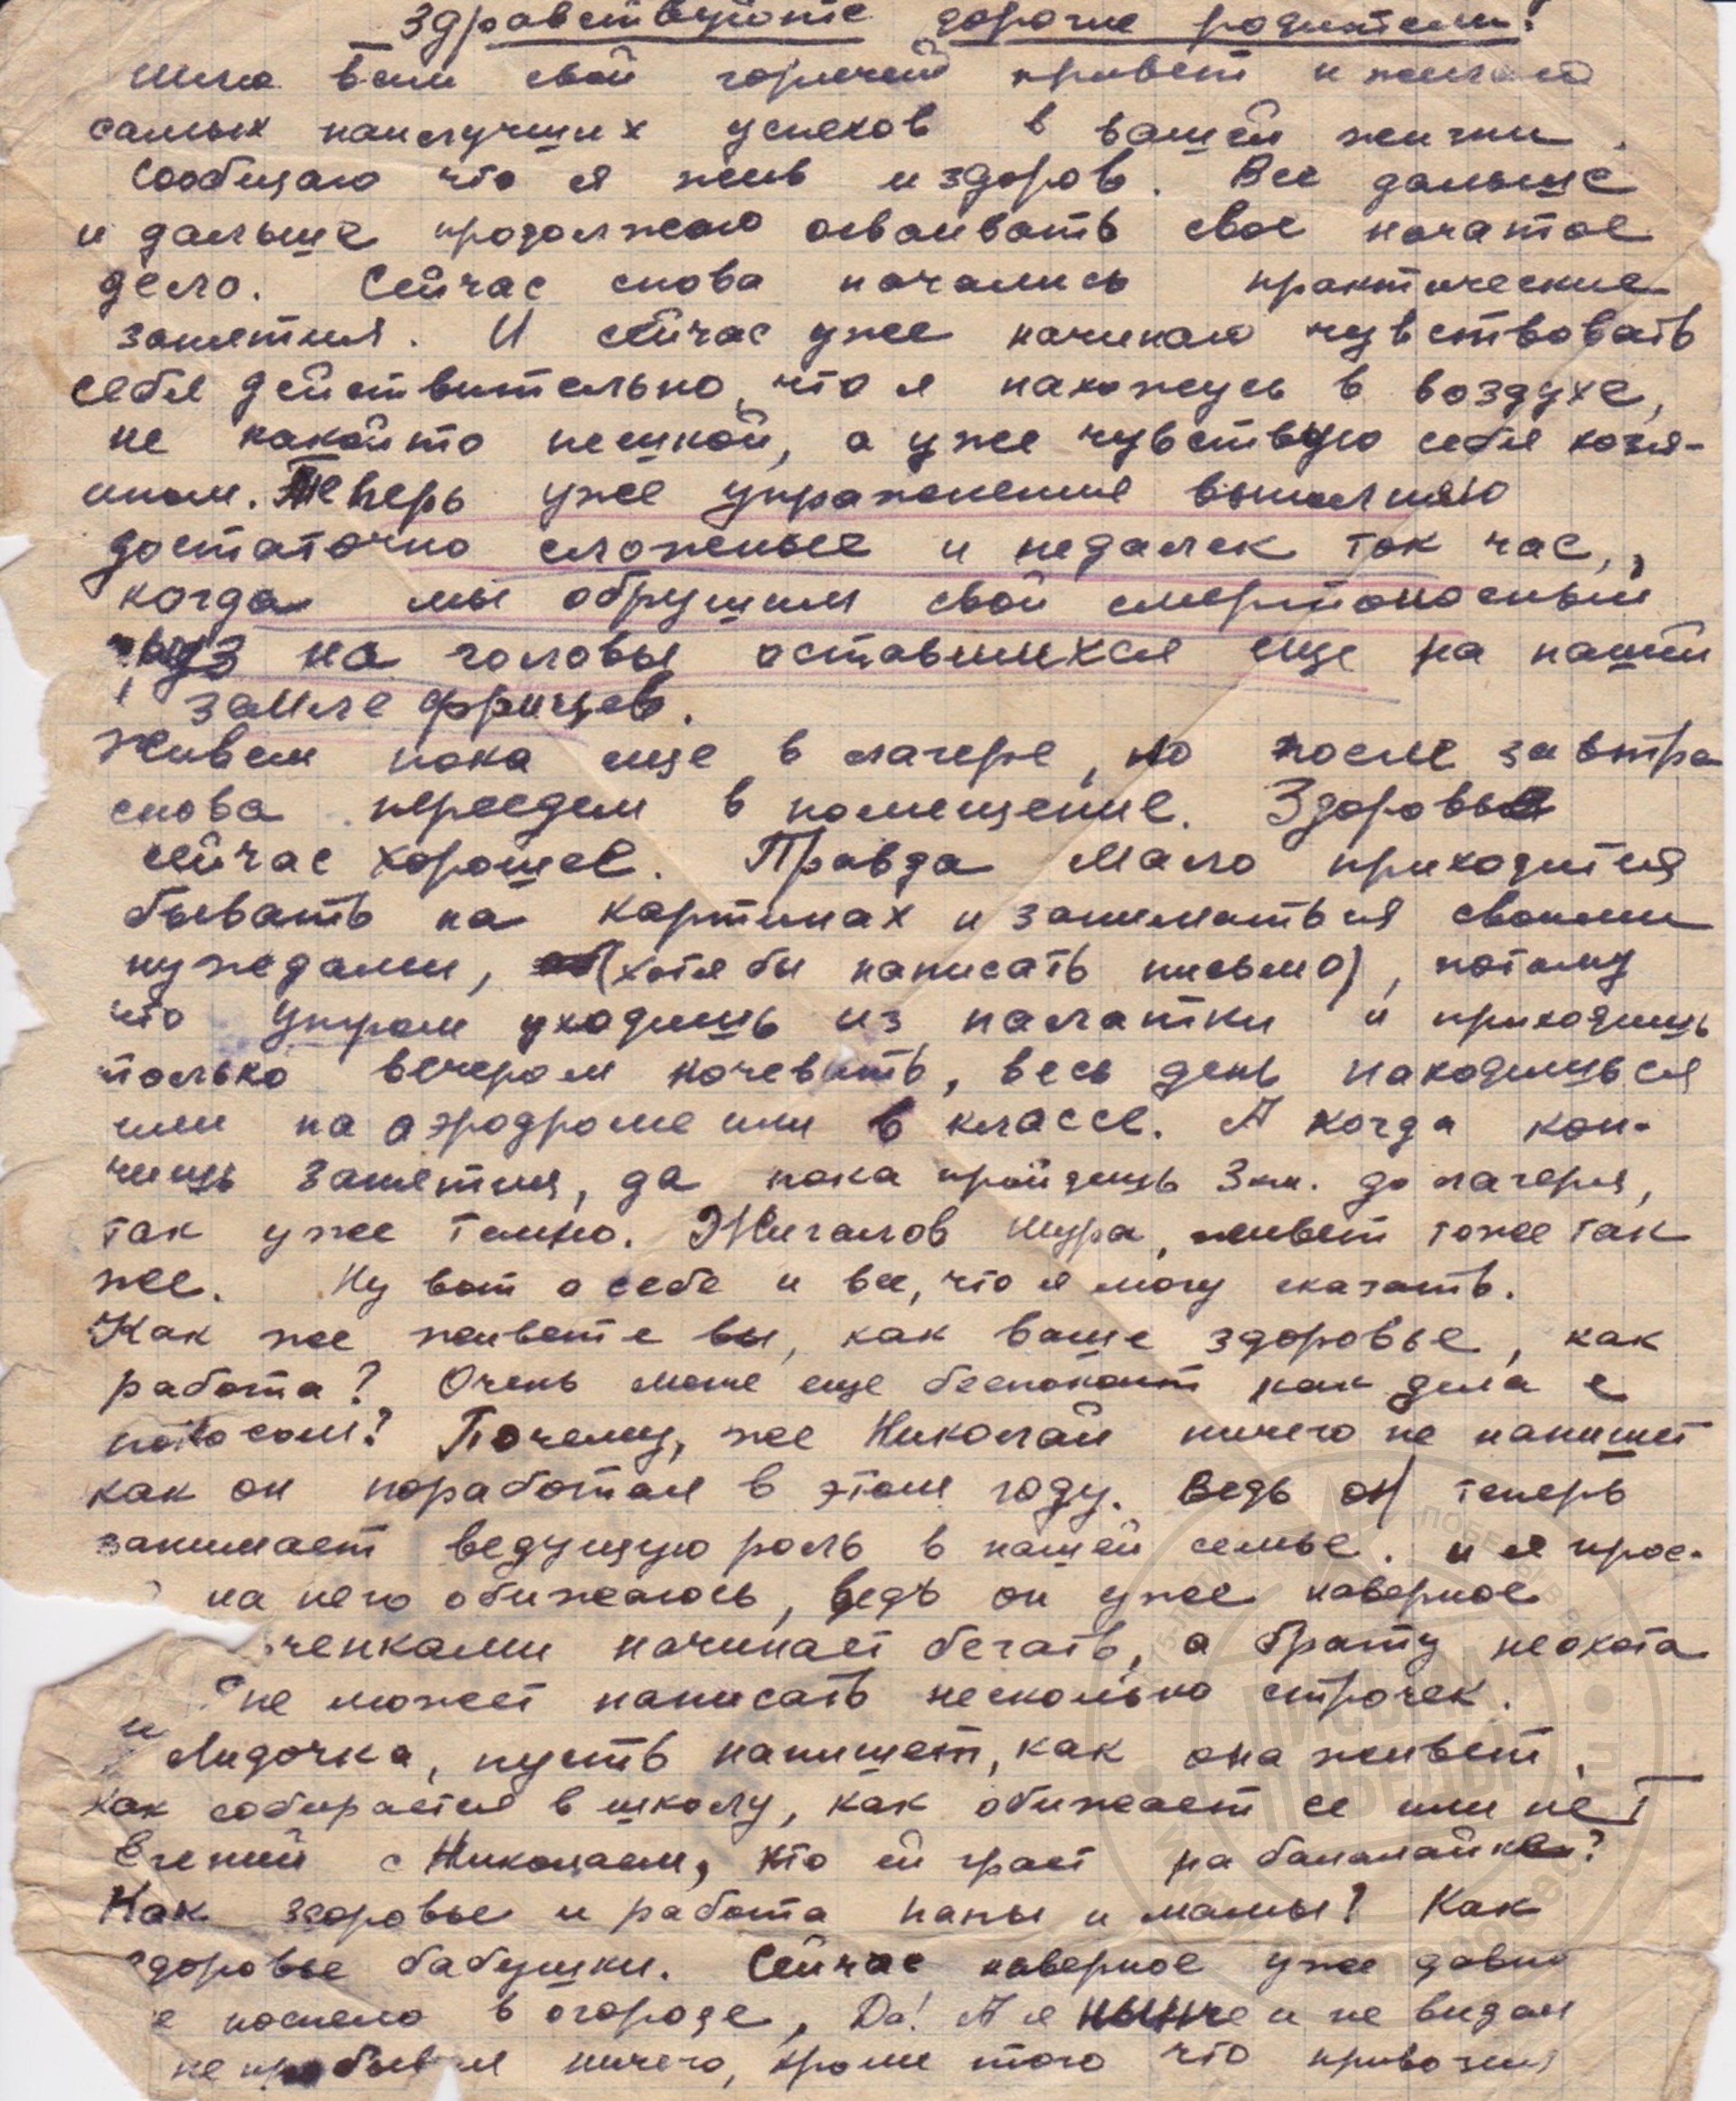 Здравствуйте дорогие родители!
Шлю вам свой горячий привет и желаю
самых наилучших успехов в вашей жизни.
Сообщаю что я жив и здоров. Все дальше
и дальше продолжаю осваивать свое начатое
дело. Сейчас снова начались практические
занятия. И сейчас уже начинаю чувствовать
себя действительно, что я нахожусь в воздухе,
не какойто пешкой, а уже чувствую себя хозя-
ином. Теперь уже упражнения выполняю
достаточно сложные и недалек так час,,
когда мы обрушим свой смертоносный
груз на головы оставшихся еще на нашей
земле фрицев.
Живем пока еще в лагере, но после завтра
снова переедем в помещение. Здоровье
сейчас хорошее. Правда мало приходится
бывать на картинах и заниматься своими
нуждами, (хотя бы написать письмо), потому
что утром уходишь из палатки и приходишь
только вечером ночевать, весь день находишься
или на аэродроме или в классе. А когда кон-
чишь занятия, да пока пройдешь 3 км. до лагеря,
так уже темно. Жигалов Шура, живет тоже так
же. Ну вот о себе и все, что я могу сказать.
Как же живете вы, как ваше здоровье, как
работа? Очень меня еще беспокоит как дела с
покосом? Почему, же Николай ничего не напишет
как он поработал в этом году. Ведь он теперь
занимает ведущую роль в нашей семье. и я прос-
на него обижаюсь, ведь он уже наверное
ченками начинает бегать, а брату неохота
не может написать несколько строчек.
и Лидочка, пусть напишет, как она живет,
как собирается в школу, как обижает ее или нет
Евгений с Николаем, кто ей грает на балалайке?
Как здоровье и работа папы и мамы? Как
здоровье бабушки. Сейчас наверное уже давно
е поспело в огороде, Да! А я нынче и не видал
не пробывал ничего, кроме того что привозил
ПИСЬМА
ПОБЕДЫ